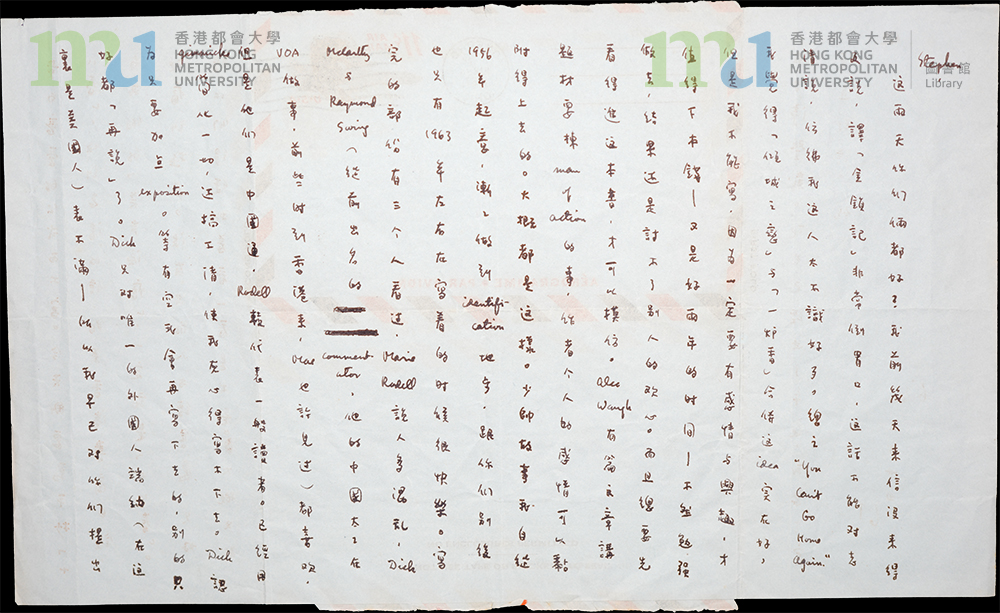 香港都會大學
HONG KONG
METROPOLITAN
UNIVERSITY
香港都會大學
HONG KONG
METROPOLITAN
UNIVERSITY
圖書館
Library
Stephen
這兩天你们倆都好了?我前幾天来信沒来得
及說,譯「金鎖記」非常倒胃口,這話不能对志
清說,彷彿我這人太不識好歹。總之"You Can't Go Home Again."
我覺得「傾城之戀」与「一炉香」合併這idea实在好,
但是我不能寫,因为一定要有感情与興趣,才
值得下本錢—又是好兩年的时间—不然勉強
做去,結果还是討不了别人的欢心。而且總要先
看得進這本書,才可以模仿。Alec Waugh有篇文章講
題材要揀man of action的事,作者个人的感情可以黏
附得上去的。大概都是這樣。少帥故事我自從
1956年起意,漸漸做到identification地步,跟你们别後
也只有1963年左右在寫着的时候很快樂。寫
完的部份有三个人看过,Marie Rodell說人多混乱,Dick
McCarthy与Raymond Swing(從前出名的commentator,他的中国太太在
VOA做事,前些时到香港来,Mae也許見过)都喜欢,
但是他们是中国通,Rodell較代表一般讀者。已經用
gimmicks简化一切,还搞不清,使我灰心得寫不下去。Dick認
为只要加点exposition。等有空我會再寫下去的,别的只
好都「再說」了。Dick又对唯一的外國人端納(在這
裏是美國人)表不滿—所以我早已对你们提出